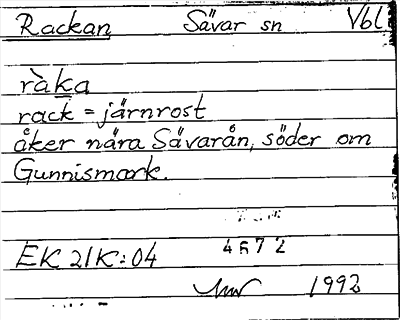 Rackan Sävar sn Vbl
ràka
rack = järnrost
åker nära Sävarån, söder om
Gunnismark.
EK 21K:04 4672
1992